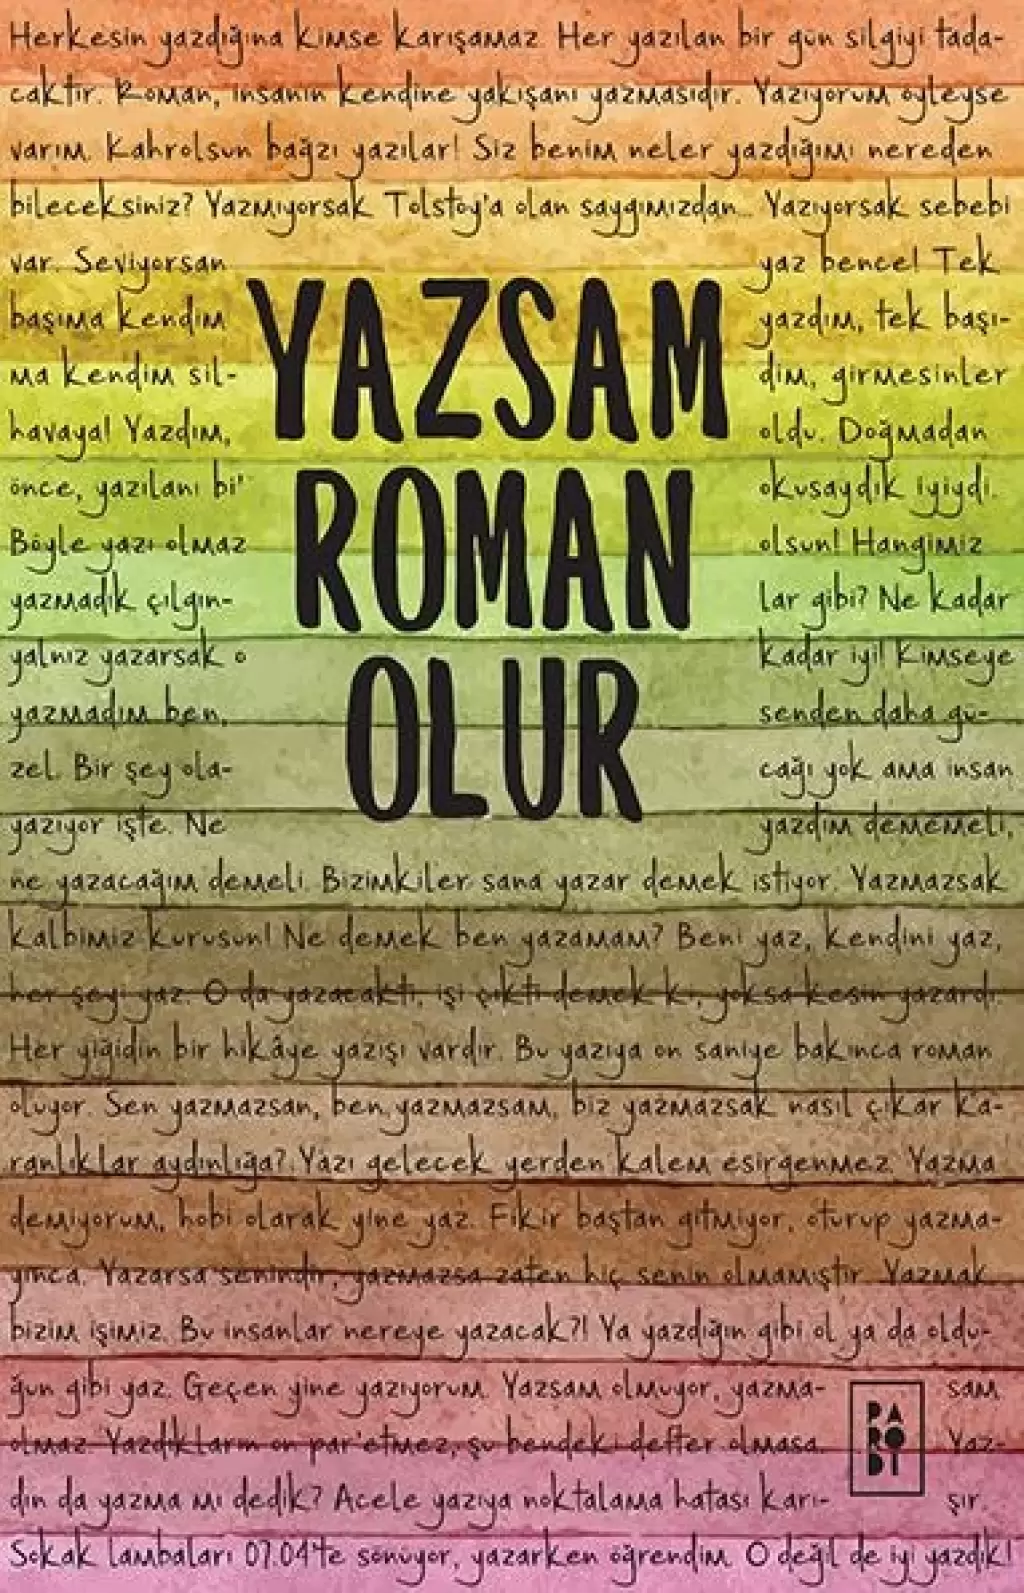 Herkesin yazdığına kimse karışamaz. Her yazılan bir gün silgiyi tada-
caktır. Roman, insanın kendine yakışanı yazmasıdır. Yazıyorum öyleyse
varım. Kahrolsun bağzı yazılar! Siz benim neler yazdığımı nereden
bileceksiniz? Yazmıyorsak Tolstoy'a olan saygımızdan... Yazıyorsak sebebi
var. Seviyorsan yaz bence! Tek
başıma kendim yazdım, tek başı-
ma kendim sil- dim, girmesinler
havaya! Yazdım, oldu. Doğmadan
önce, yazılanı bi' okusaydık iyiydi.
Böyle yazı olmaz olsun! Hangimiz
yazmadık çılgın- lar gibi? Ne kadar
yalnız yazarsak o kadar iyi! Kimseye
yazmadım ben, senden daha gü-
zel. Bir şey ola- cağı yok ama insan
yazıyor işte. Ne yazdım dememeli,
YAZSAM
ROMAN
OLUR
ne yazacağım demeli. Bizimkiler sana yazar demek istiyor. Yazmazsak
kalbimiz kurusun! Ne demek ben yazamam? Beni yaz, kendini yaz,
her şeyi yaz. O da yazacaktı, işi çıktı demek ki, yoksa kesin yazardı.
Her yiğidin bir hikâye yazışı vardır. Bu yazıya on saniye bakınca roman
oluyor. Sen yazmazsan, ben yazmazsam, biz yazmazsak nasıl çıkar ka-
ranlıklar aydınlığa? Yazı gelecek yerden kalem esirgenmez. Yazma
demiyorum, hobi olarak yine yaz. Fikir baştan gitmiyor, oturup yazma-
yınca. Yazarsa senindir, yazmazsa zaten hiç senin olmamıştır. Yazmak
bizim işimiz. Bu insanlar nereye yazacak?! Ya yazdığın gibi ol ya da oldu-
ğun gibi yaz. Geçen yine yazıyorum. Yazsam olmuyor, yazma- sam
olmaz. Yazdıkların on par'etmez, şu bendeki defter olmasa. Yaz-
dın da yazma mı dedik? Acele yazıya noktalama hatası karı- şır.
PA
RO
Dİ
Sokak lambaları 07.04'te sönüyor, yazarken öğrendim. O değil de iyi yazdık!